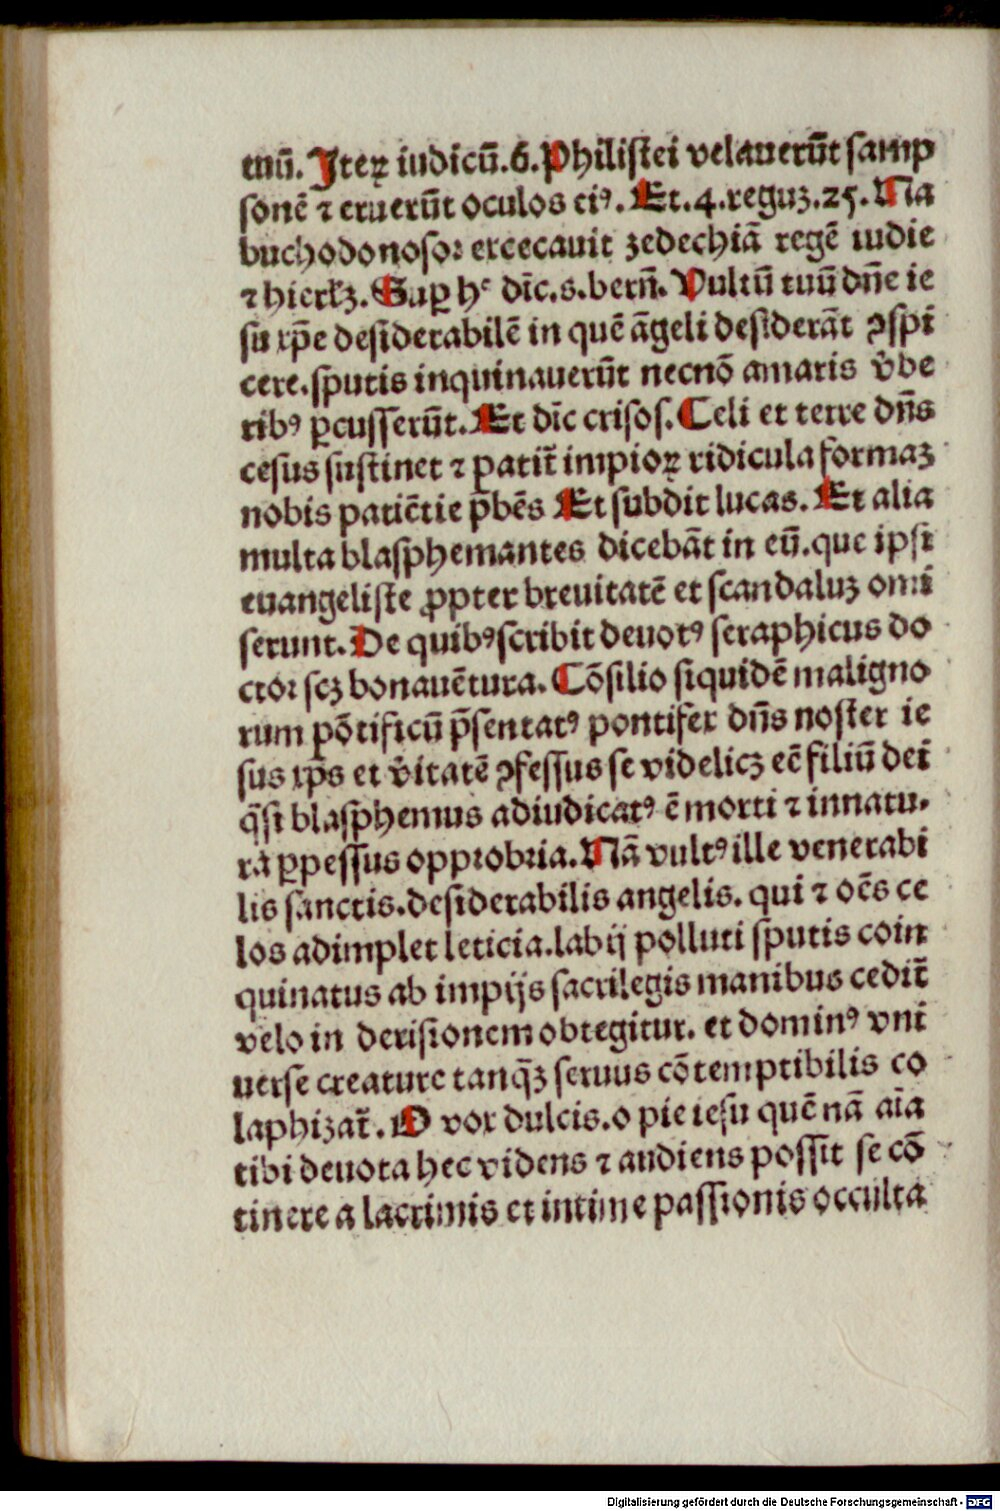 tnū. Iteꝝ iudicū.6. Philistei velauerūt samp
sonē ⁊ eruerūt oculos eiꝰ. Et.4.reguʒ.25. Na
buchodonosor excecauit zedechiā regē iudie
⁊ hierłʒ. Suꝑ hᶜ dīc.s.bern̄. Vultū tuū dn̄e ie
su xp̄e desiderabilē in quē āgeli desiderāt ꝓspi
cere.sputis inquinauerūt necnō amaris v̄be
ribꝰ ꝑcusserūt. Et dīc crisos. Celi et terre dn̄s
cesus sustinet ⁊ patit̄ impioꝝ ridicula formaʒ
nobis patiētie p̄bēs Et subdit lucas. Et alia
multa blasphemantes dicebāt in eū.que ipsi
euangeliste ꝓpter breuitatē et scandaluʒ omi
serunt. De quibꝰ scribit deuotꝰ seraphicus do
ctor scʒ bonauētura. Cōsilio siquidē maligno
rum pōtificū p̄sentatꝰ pontifex dn̄s noster ie
sus xp̄s et v̄itatē ꝯfessus se videlicʒ eē filiū dei
q̄si blasphemus adiudicatꝰ ē morti ⁊ innatu-
rā ꝑpessus opprobria. Nā vultꝰ ille venerabi
lis sanctis.desiderabilis angelis. qui ⁊ oēs ce
los adimplet leticia.labij polluti sputis coin
quinatus ab impijs sacrilegis manibus cedit̄
velo in derisionem obtegitur. et dominꝰ vni
uerse creature tanq̄ʒ seruus cōtemptibilis co
laphizat̄. O vox dulcis.o pie iesu quē nā aīa
tibi deuota hec videns ⁊ audiens possit se cō
tinere a lacrimis et intime passionis occulta
Digitalisierung gefördert durch die Deutsche Forschungsgemeinschaft - DFG